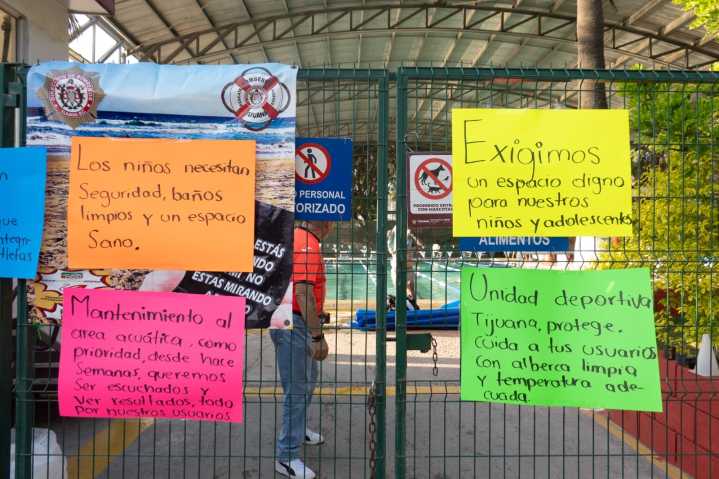 Los niños necesitan
Seguridad, baños
limpios y un espacio
Sano.
Mantenimiento al
area acuática, como
prioridad, desde hace
Semanas, queremos
Ser escuchados y
Ver resultados, todo
por nuestros usuarios
ESTÁS
MI NO
ESTÁS MIRANDO
PERSONAL
AUTORIZADO
Exigimos
un espacio digno
para nuestros
niños y adolescentes
ALIMENTOS
Unidad deportiva
Tijuana, protege.
cuida a tus usuarios
Con alberca limpia
y temperatura ade-
cuada.